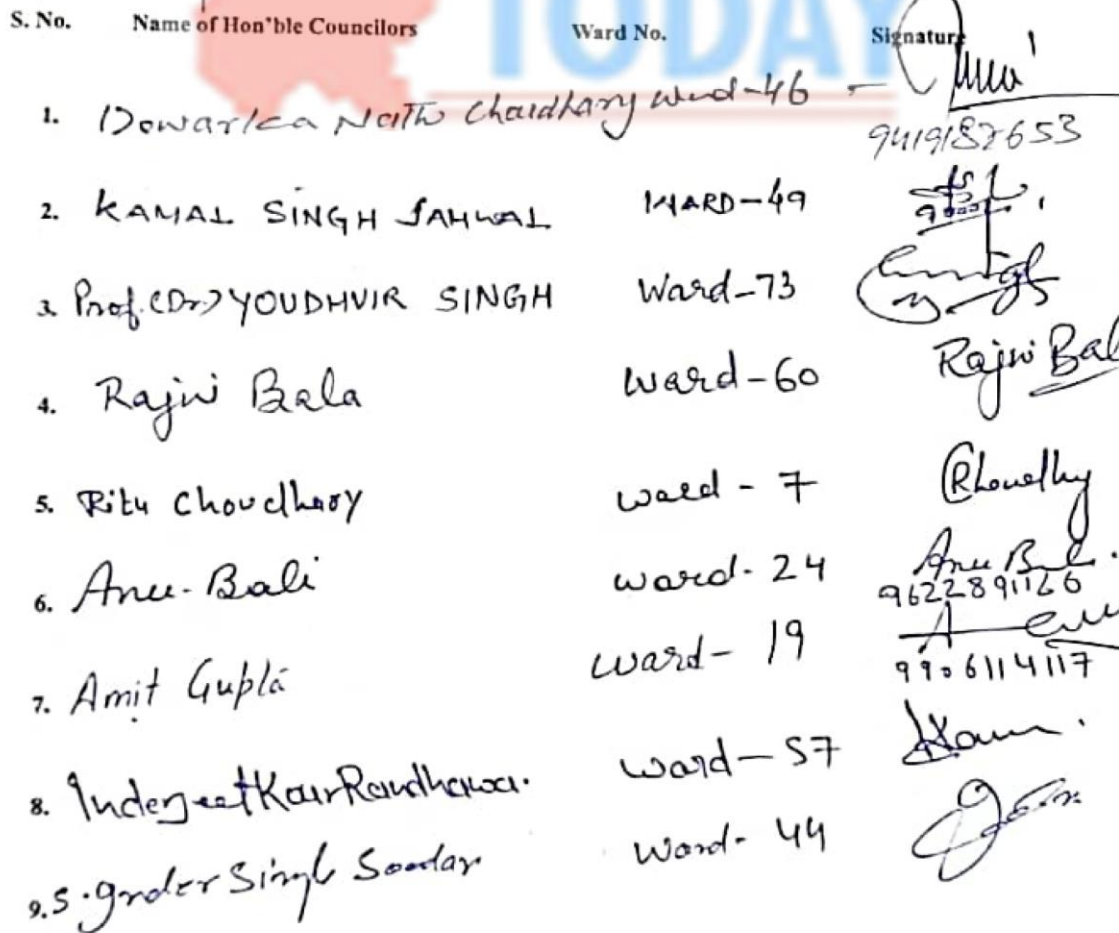 TODAY
S. No. Name of Hon'ble Councilors Ward No. Signature
1. Dowarka Nath Chaudhary Ward-46 -
9419187653
2. KAMAL SINGH JAMWAL WARD-49
3. Prof.(Dr) YOUDHVIR SINGH Ward-73
4. Rajni Bala Ward-60 Rajni Bal
5. Ritu Choudhary ward - 7 RChoudhy
6. Anu-Bali ward-24 Anu Bal.
9622891126
7. Amit Gupta ward- 19
9906114117
8. Inderjeet Kaur Randhawa. ward-57 Kaur.
9. S. Inder Singh Soodan Ward-44